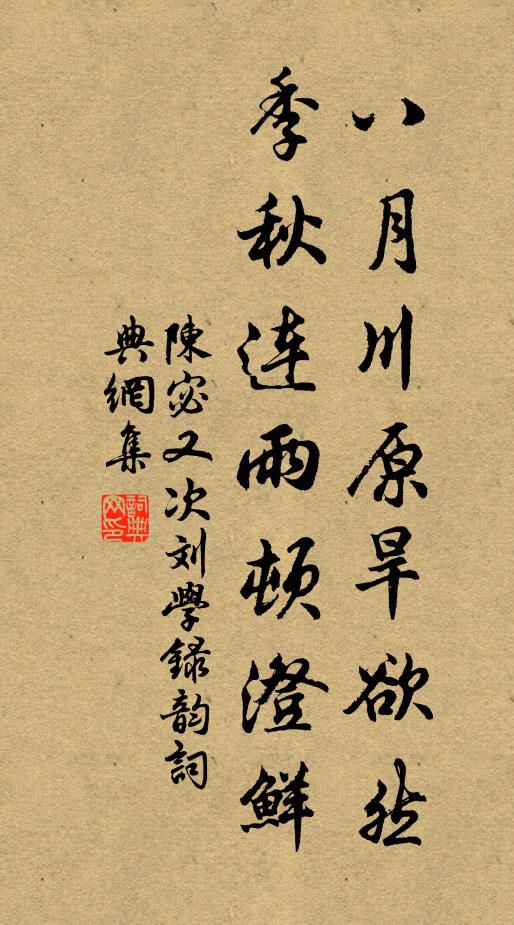 八月川原旱欲然
季秋连雨頓澄鮮
陳宓又次刘學録韵詞
典網集
詞典網印